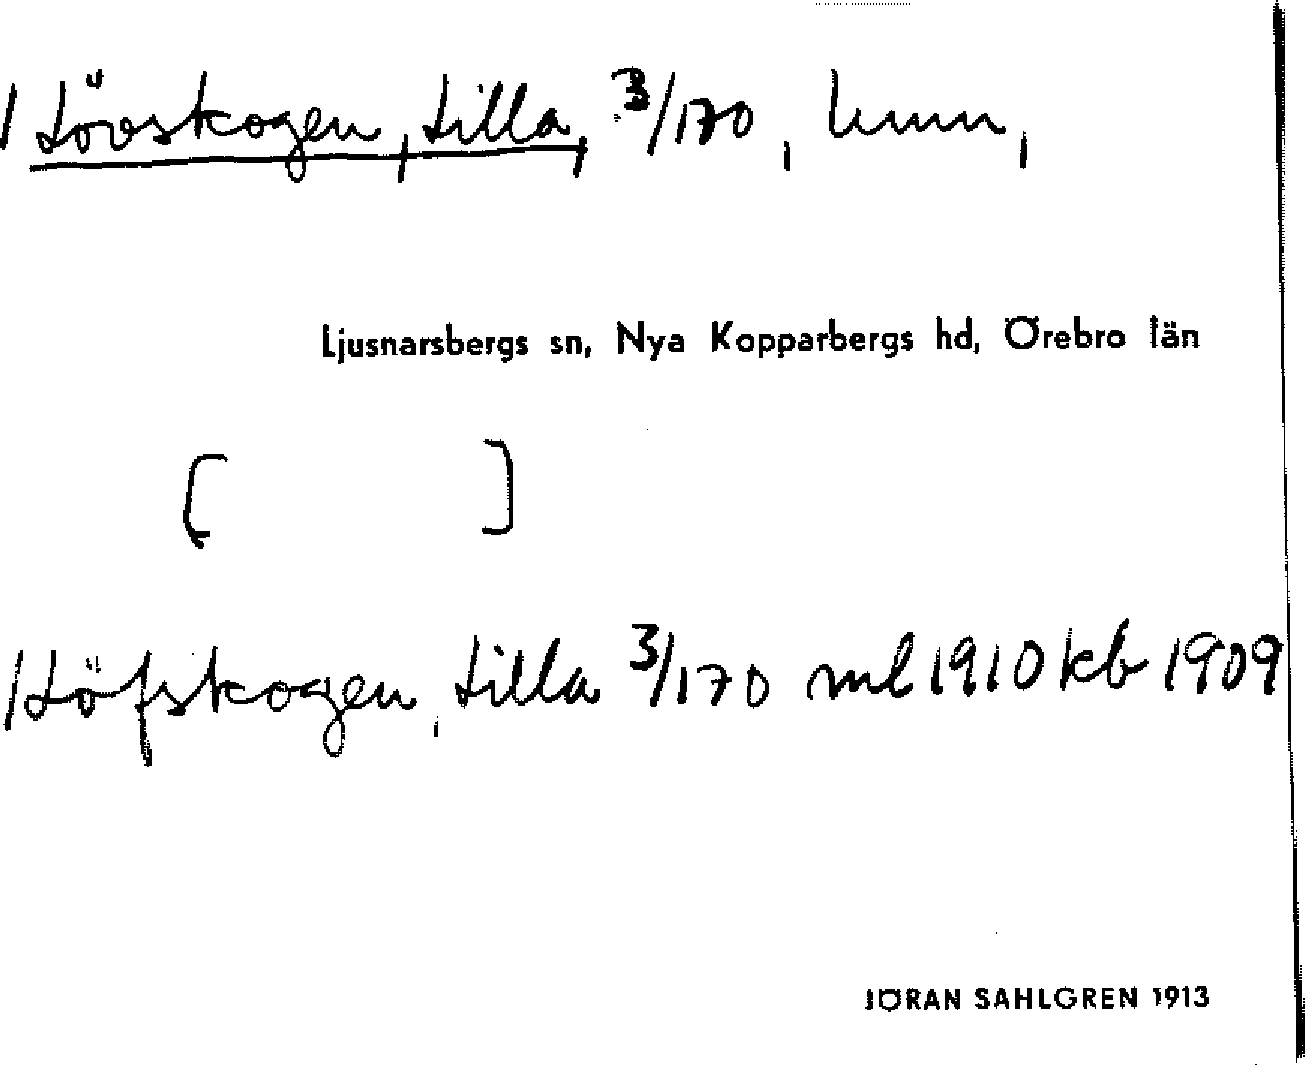 / Lövskogen, Lilla, 3/170, hmn,
Ljusnarsbergs sn, Nya Kopparbergs hd, Örebro län
[ ]
/ Löfskogen, Lilla 3/170 ml 1910 kb 1909
JÖRAN SAHLGREN 1913